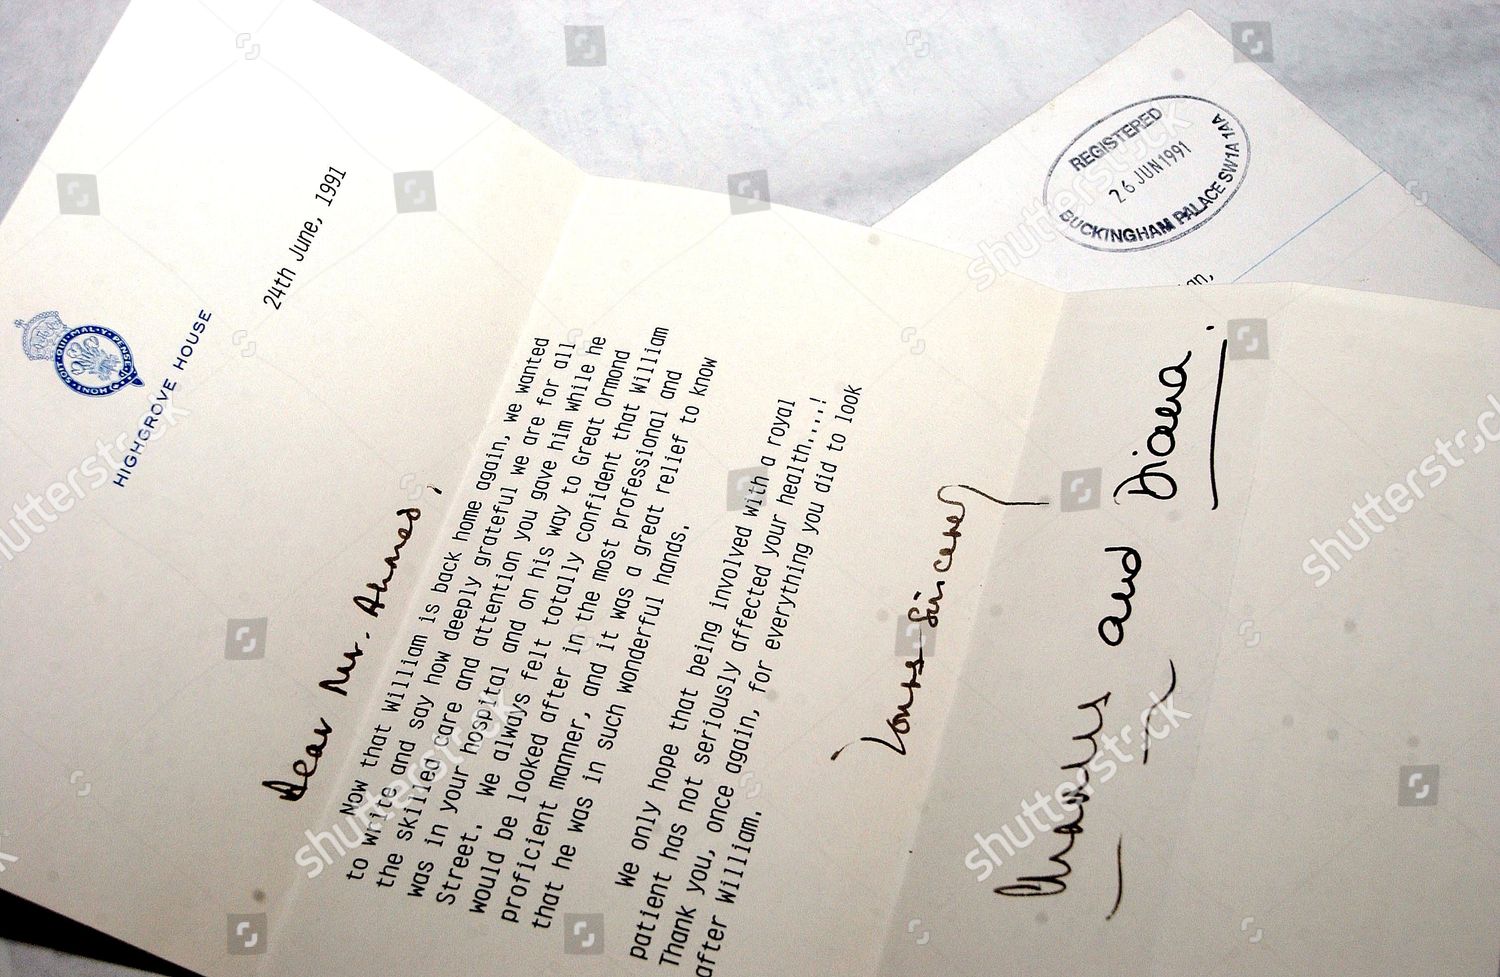 HONI·SOIT·QUI·MAL·Y·PENSE
HIGHGROVE HOUSE
24th June, 1991
Dear Mr. Ahmed,
Now that William is back home again, we wanted
to write and say how deeply grateful we are for all
the skilled care and attention you gave him while he
was in your hospital and on his way to Great Ormond
Street. We always felt totally confident that William
would be looked after in the most professional and
proficient manner, and it was a great relief to know
that he was in such wonderful hands.
We only hope that being involved with a royal
patient has not seriously affected your health....!
Thank you, once again, for everything you did to look
after William.
Yours sincerely
Charles and Diana.
REGISTERED
26 JUN 1991
BUCKINGHAM PALACE SW1A 1AA
shutterstock
shutterstock
shutterstock
shutterstock
shutterstock
shutterstock
shutterstock